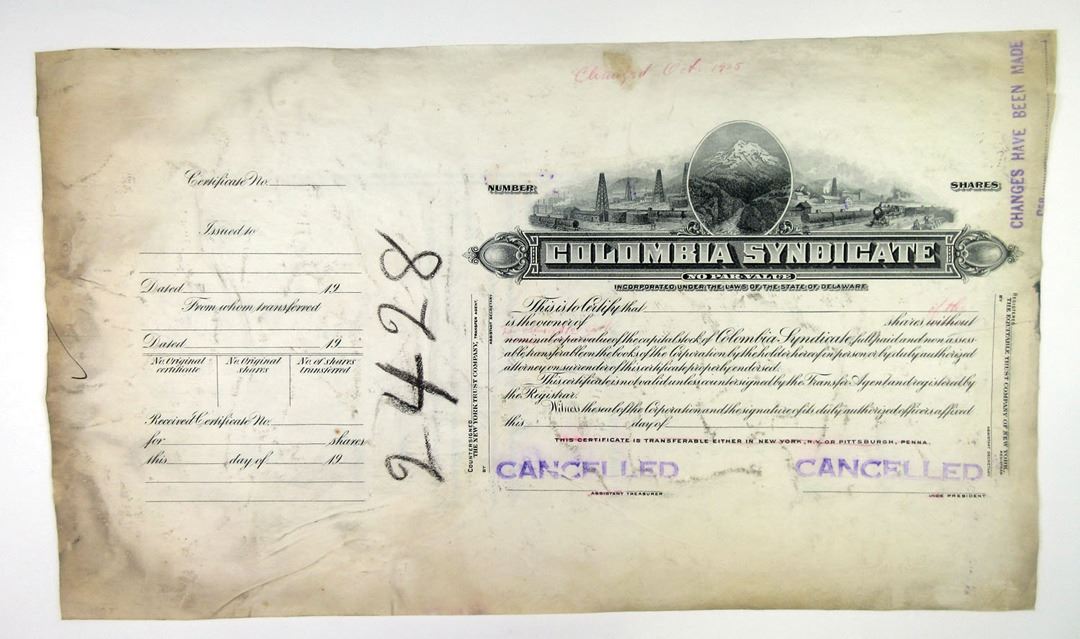 Changed Oct. 1925
CHANGES HAVE BEEN MADE
Certificate No.
Issued to
Dated 19
From whom transferred
Dated 19
No. Original certificate
No. Original shares
No. of shares transferred
Received Certificate No.
for shares
this day of 19
2428
NUMBER
SHARES
COLOMBIA SYNDICATE
NO PAR VALUE
INCORPORATED UNDER THE LAWS OF THE STATE OF DELAWARE
This is to Certify that
is the owner of shares without
nominal or par value of the capital stock of Colombia Syndicate, full paid and non assess-
able, transferable on the books of the Corporation by the holder hereof in person or by duly authorized
attorney on surrender of this certificate properly endorsed.
This certificate is not valid unless countersigned by the Transfer Agent and registered by
the Registrar.
Witness the seal of the Corporation and the signatures of its duly authorized officers affixed
this day of
THIS CERTIFICATE IS TRANSFERABLE EITHER IN NEW YORK, N.Y. OR PITTSBURGH, PENNA.
CANCELLED
CANCELLED
ASSISTANT TREASURER
VICE PRESIDENT
COUNTERSIGNED
THE NEW YORK TRUST COMPANY, TRANSFER AGENT,
BY ASSISTANT SECRETARY
REGISTERED
THE EQUITABLE TRUST COMPANY OF NEW YORK,
ASSISTANT SECRETARY